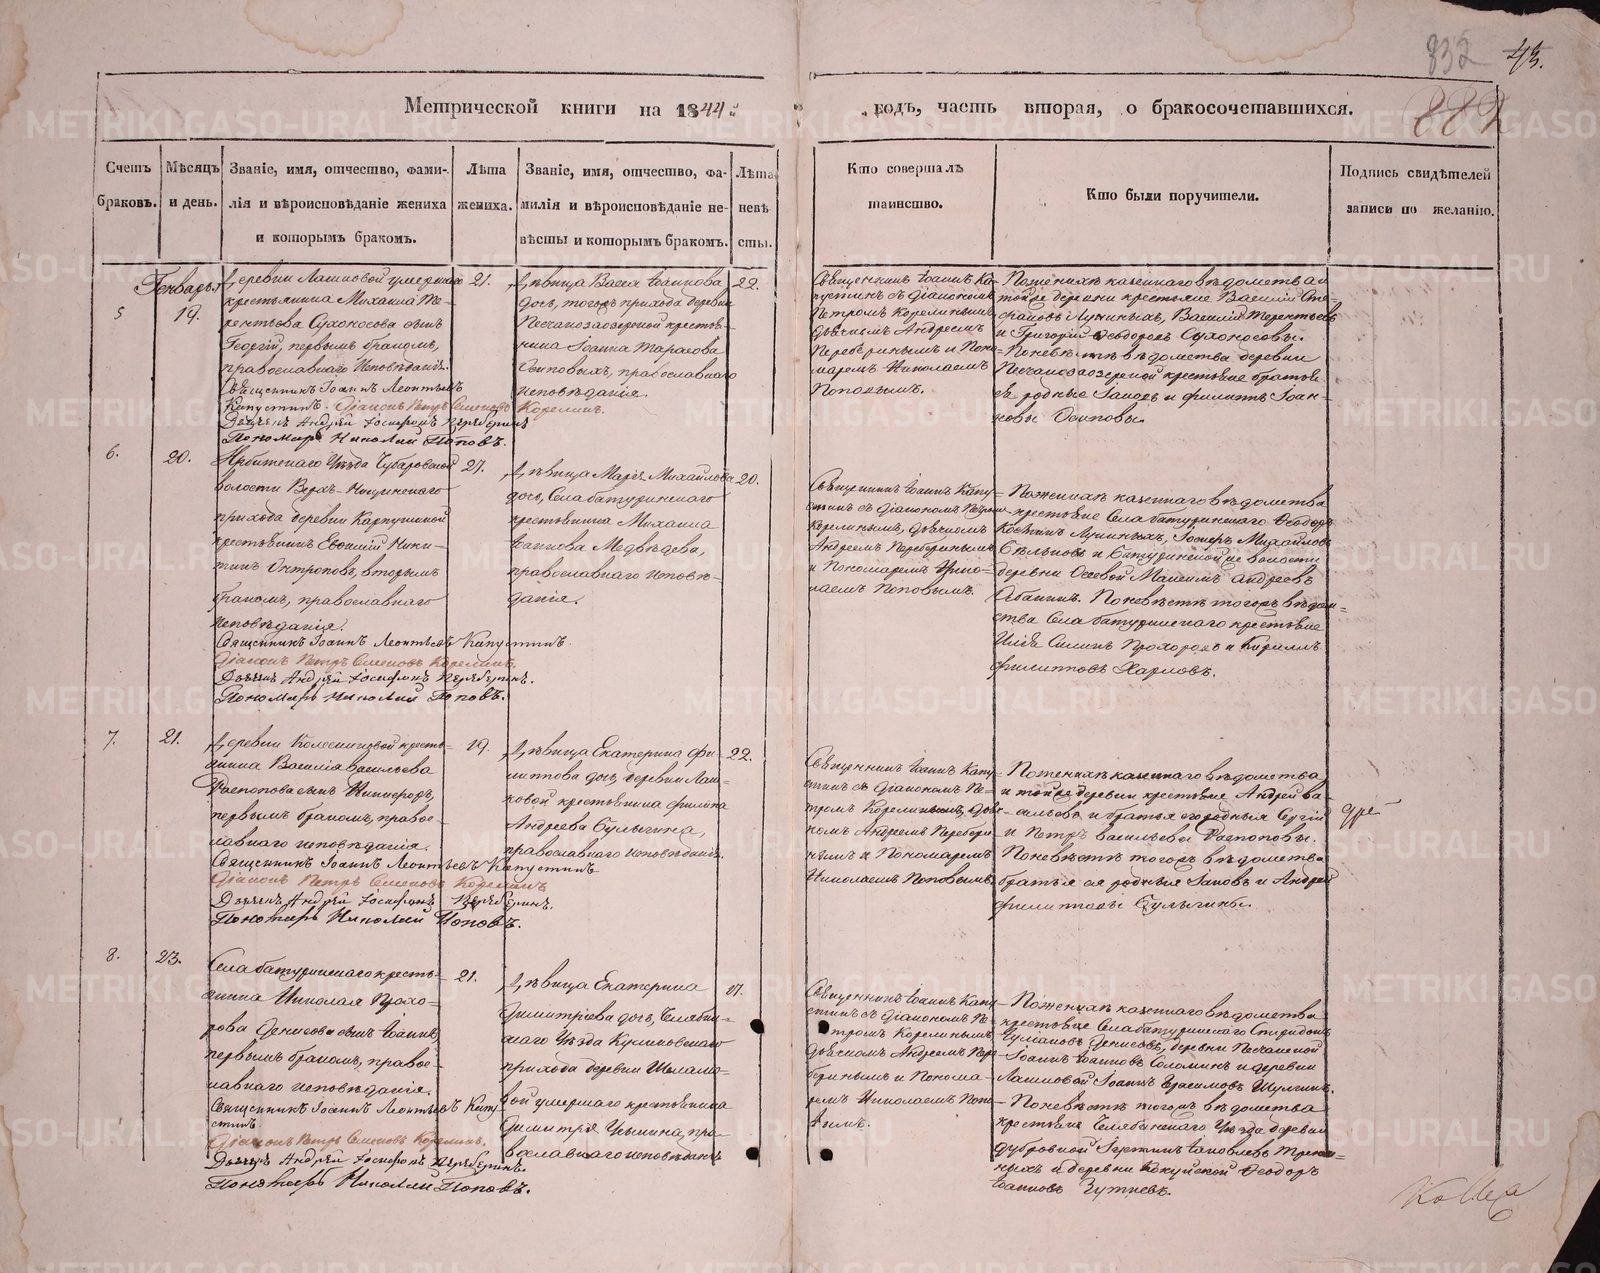 832 43.
882
Метрической книги на 1844й годъ, часть вторая, о бракосочетавшихся.
Счетъ браковъ.
Мѣсяцъ и день.
Званіе, имя, отчество, фами-
лія и вѣроисповѣданіе жениха
и которымъ бракомъ.
Лѣта
жениха.
Званіе, имя, отчество, фа-
милія и вѣроисповѣданіе не-
вѣсты и которымъ бракомъ.
Лѣта
невѣ
сты.
Кто совершалъ
таинство.
Кто были поручители.
Подпись свидѣтелей
записи по желанію.
Генварья
5
19.
Деревни Лашковой умершаго
крестьянина Михаила Те-
рентьева Сухоносова сынъ
Георгій, первымъ бракомъ,
православнаго исповѣданія.
Священникъ Іоаннъ Леонтьевъ
Капустинъ. Діаконъ Петръ Семеновъ Корелинъ.
Дьячекъ Андрей Іосифовъ Переберинъ
Пономарь Николай Поповъ.
21.
Дѣвица Васса Іоаннова
дочь, тогожъ прихода деревни
Песчанозаозерной крестья-
нина Іоанна Тарасова
Осиповыхъ, православнаго
исповѣданія.
22.
Священникъ Іоаннъ Ка-
пустинъ съ Діакономъ
Петромъ Корелинымъ
дьячкомъ Андреемъ
Переберинымъ и Поно-
маремъ Николаемъ
Поповымъ.
По женихѣ казеннаго вѣдомства
той же деревни крестьяне Василій
Лукиныхъ, Василій Терентьевъ
и Григорій Ѳеодоровъ Сухоносовы.
По невѣстѣ вѣдомства деревни
Песчанозаозерной крестьяне братья
ея родные Іаковъ и Филиппъ Іоан-
новы Осиповы.
6.
20.
Ирбитскаго Уѣзда Чубаровской
волости Верх-Ницинскаго
прихода деревни
крестьянинъ Евѳимій Ники-
тинъ вторымъ
бракомъ, православнаго
исповѣданія.
Священникъ Іоаннъ Леонтьевъ Капустинъ.
Діаконъ Петръ Семеновъ Корелинъ.
Дьячекъ Андрей Іосифовъ Переберинъ.
Пономарь Николай Поповъ.
27.
Дѣвица Марія Михайлова
дочь, Села батуринскаго
крестьянина Михаила
Іоаннова Медвѣдева,
православнаго исповѣ-
данія.
20.
Священникъ Іоаннъ Капу-
стинъ съ Діакономъ Петромъ
Корелинымъ, дьячкомъ
Андреемъ Переберинымъ
и Пономаремъ Нико-
лаемъ Поповымъ.
По женихѣ казеннаго вѣдомства
крестьяне Села батуринскаго Ѳеодоръ
Лукиныхъ, Іосифъ Михайловъ
и Батуринской же волости
деревни Осеевой Максимъ Андреевъ
По невѣстѣ тогожъ вѣдом-
ства Села батуринскаго крестьяне
Илія Прохоровъ и Кириллъ
Филипповъ Харловъ.
7.
21.
Деревни Колесниковой кресть-
янина Василія Васильева
Распопова сынъ Никифоръ,
первымъ бракомъ, право-
славнаго исповѣданія.
Священникъ Іоаннъ Леонтьевъ Капустинъ
Діаконъ Петръ Семеновъ Корелинъ
Дьячекъ Андрей Іосифовъ Переберинъ.
Пономарь Николай Поповъ.
19.
Дѣвица Екатерина Фи-
липпова дочь, деревни Лаш-
ковой крестьянина Филиппа
Андреева Булыгина,
православнаго исповѣданія.
22.
Священникъ Іоаннъ Капу-
стинъ съ Діакономъ Пе-
тромъ Корелинымъ, дьяч-
комъ Андреемъ Перебери-
нымъ и Пономаремъ
Николаемъ Поповымъ.
По женихѣ казеннаго вѣдомства
и той же деревни крестьяне Андрей Ва-
сильевъ и братья его родныя Сергій
и Петръ Васильевы Распоповы.
По невѣстѣ тогожъ вѣдомства
братья ея родныя Іаковъ и Андрей
Филипповы Булыгины.
8.
23.
Села батуринскаго кресть-
янина Николая Прохо-
рова Денисова сынъ Іоаннъ,
первымъ бракомъ, право-
славнаго исповѣданія.
Священникъ Іоаннъ Леонтьевъ Капу
стинъ
Діаконъ Петръ Семеновъ Корелинъ.
Дьячекъ Андрей Іосифовъ Переберинъ.
Пономарь Николай Поповъ.
21.
Дѣвица Екатерина
Димитріева дочь, Челябин-
скаго Уѣзда Куликовскаго
прихода деревни
умершаго крестьянина
Димитрія пра-
вославнаго исповѣданія
Священникъ Іоаннъ Капу-
стинъ съ Діакономъ Пе-
тромъ Корелинымъ
дьячкомъ Андреемъ Пере-
беринымъ и Понома-
ремъ Николаемъ Попо-
вымъ.
По женихѣ казеннаго вѣдомства
крестьяне Села батуринскаго Спиридонъ
Денисовъ, деревни Песчанской
Іоаннъ Іоанновъ Соломинъ и деревни
Лашковой Іоаннъ Герасимовъ Шулгинъ.
По невѣстѣ тогожъ вѣдомства
крестьяне Челябинскаго Уѣзда деревни
дубровной Іаковлевъ
и деревни Ѳеодоръ
Іоанновъ